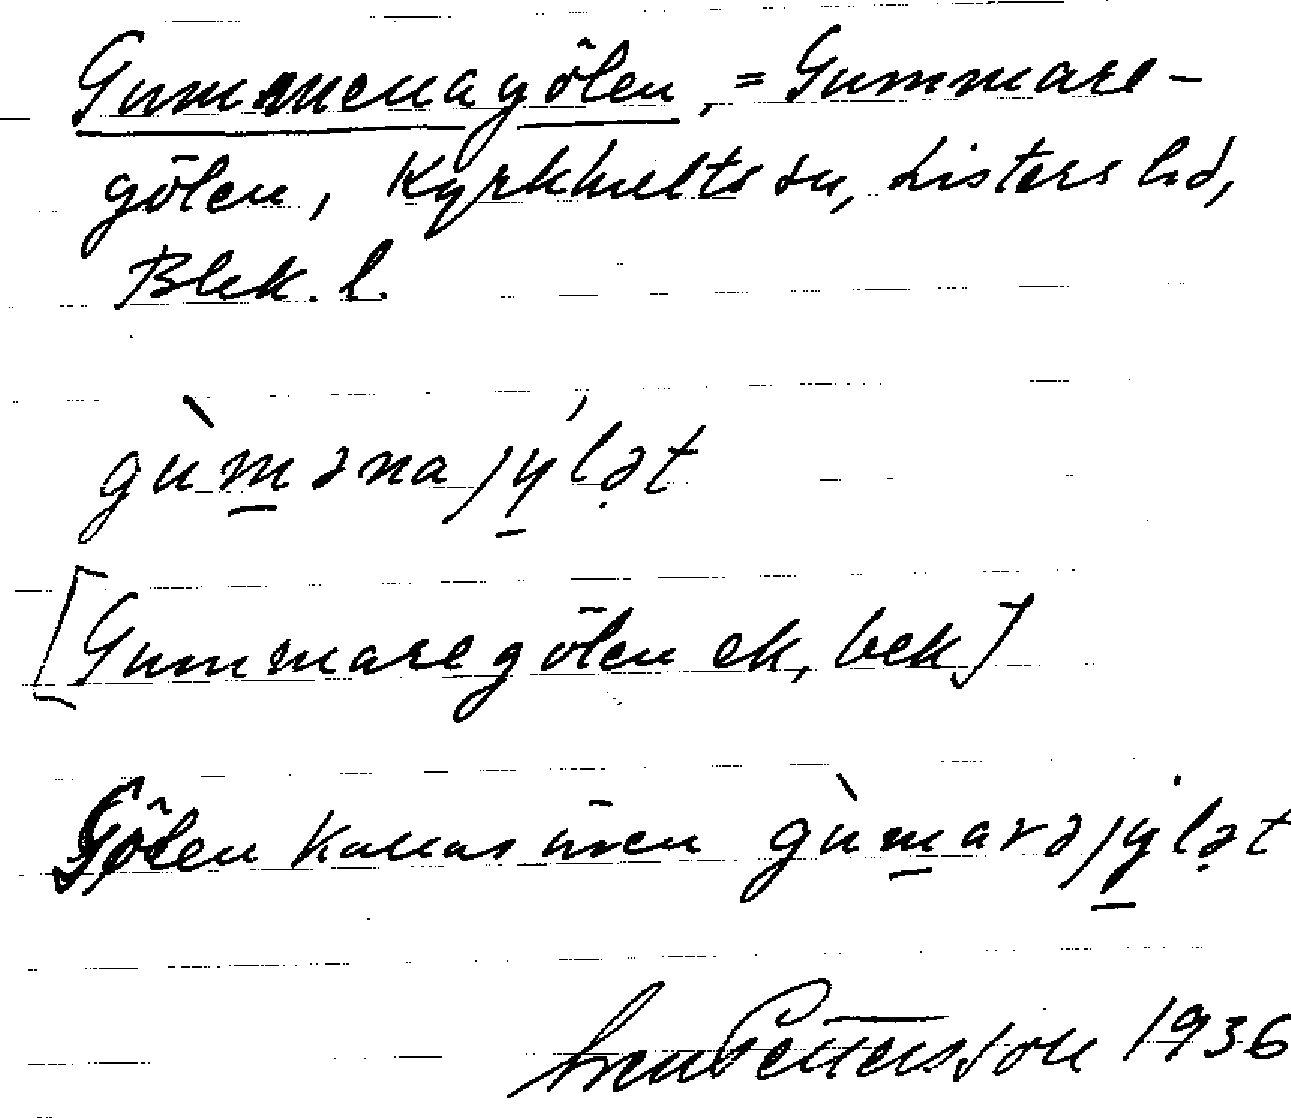 Gummenagölen, = Gummare-
gölen, Kyrkhults sn, Listers hd,
Blek. l.
gùmənajýlət
[Gummaregölen ek, bek]
Gölen kallas även gùmarəjylət
Sven Pettersson 1936